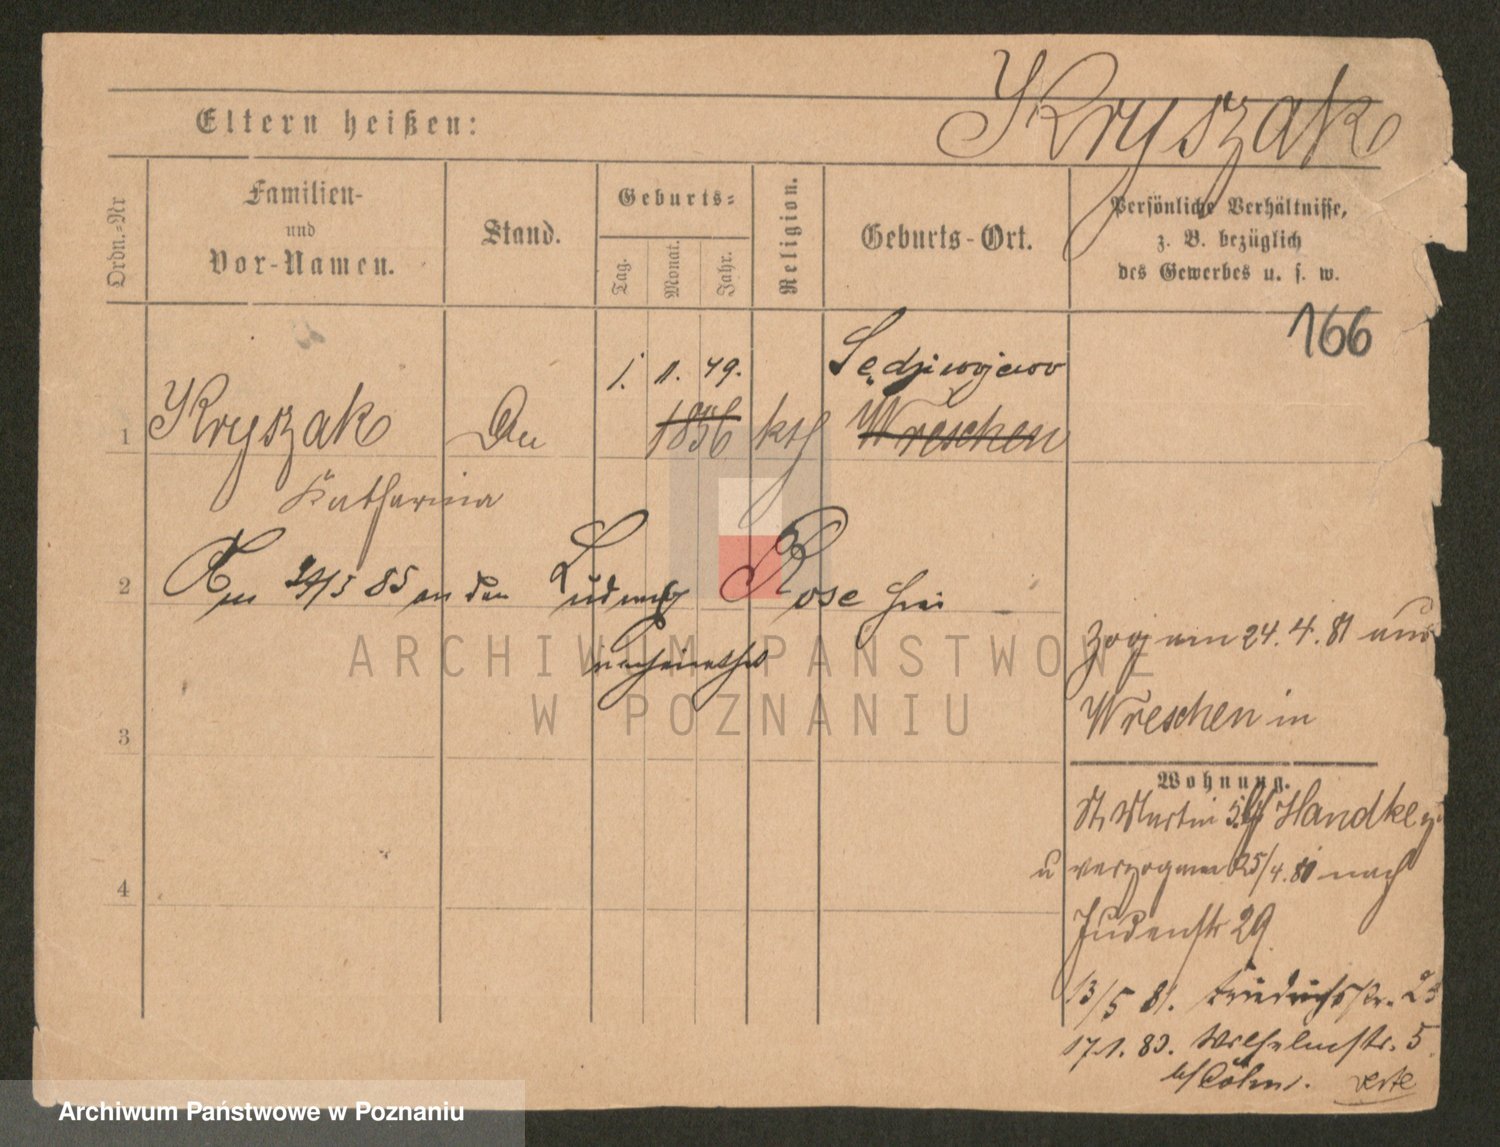 Kryszak
Eltern heißen:
Ordn.=Nr
Familien-
und
Vor-Namen.
Stand.
Geburts=
Tag.
Monat.
Jahr.
Religion.
Geburts-Ort.
Persönliche Verhältnisse,
z. B. bezüglich
des Gewerbes u. s. w.
166
1. 11. 49. Sędziwojewo
1 Kryszak 1856 kth Wreschen
Katharina
2 Am 24/5 85 an den Ludwig Rose
zog am 24. 4. 81 aus
Wreschen in
3
Wohnung.
St. Martin Handke
u verzog am 25/4. 81 nach
4
Judenstr 29
13/5 81. Friedrichstr. 25
17.1. 83. Wilhelmstr. 5
b/
ARCHIWUM PAŃSTWOWE
W POZNANIU
Archiwum Państwowe w Poznaniu